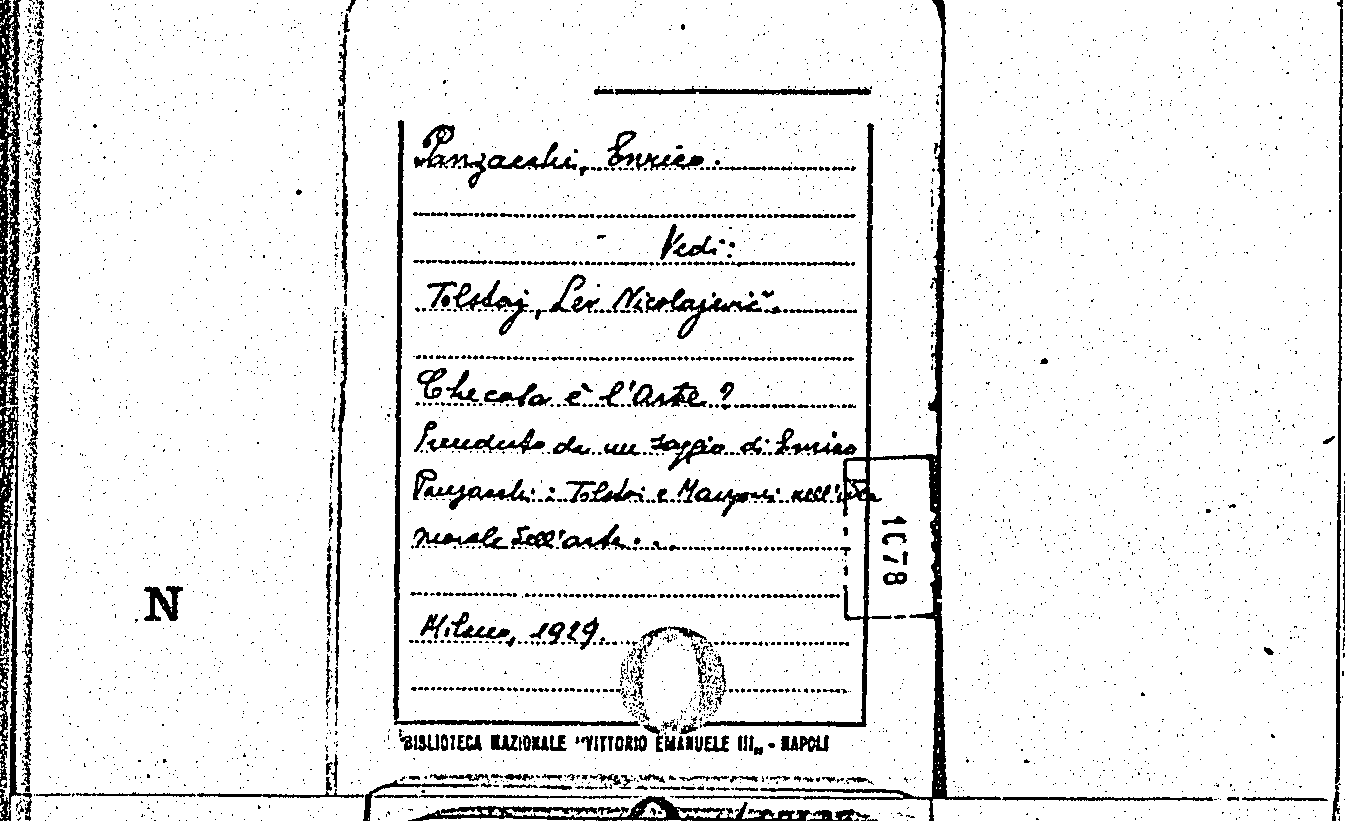 Panzacchi, Enrico.
Vedi:
Tolstoj, Lev Nicolajevič.
Che cosa è l'Arte?
Preceduto da un saggio di Enrico
Panzacchi: Tolstoi e Manzoni nell'idea
morale dell'arte...
Milano, 1929.
1078
N
BIBLIOTECA NAZIONALE "VITTORIO EMANUELE III„ - NAPOLI